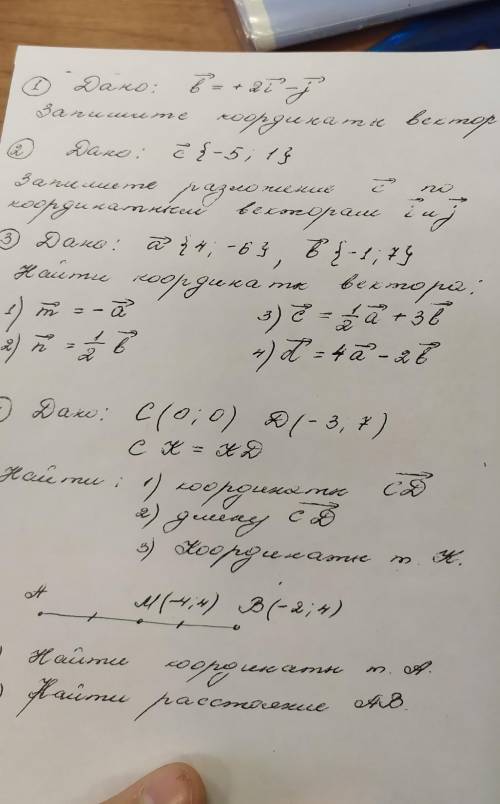 ① Дано: b⃗ = + 2i⃗ - j⃗
Запишите координаты вектор
② Дано: c⃗ {-5; 1}
Запишете разложение c⃗ по
координатным векторам i⃗ и j⃗
③ Дано: a⃗ {4; -6}, b⃗ {-1; 7}
Найти координаты вектора:
1) m⃗ = -a⃗ 3) c⃗ = 1/2 a⃗ + 3b⃗
2) n⃗ = 1/2 b⃗ 4) d⃗ = 4a⃗ - 2b⃗
Дано: C(0; 0) D(-3, 7)
CK = KD
Найти: 1) координаты CD⃗
2) длину CD⃗
3) Координаты т. K.
A M(-4; 4) B(-2; 4)
Найти координаты т. A.
Найти расстояние AB.